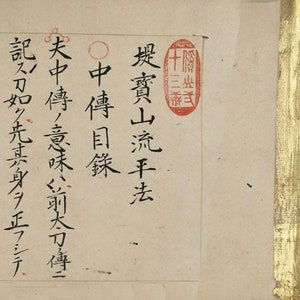 堤寳山流平法
中傳目錄
夫中傳ノ意味ハ前太刀ノ傳ニ
記ス刀如ク先其身ヲ正フシテ